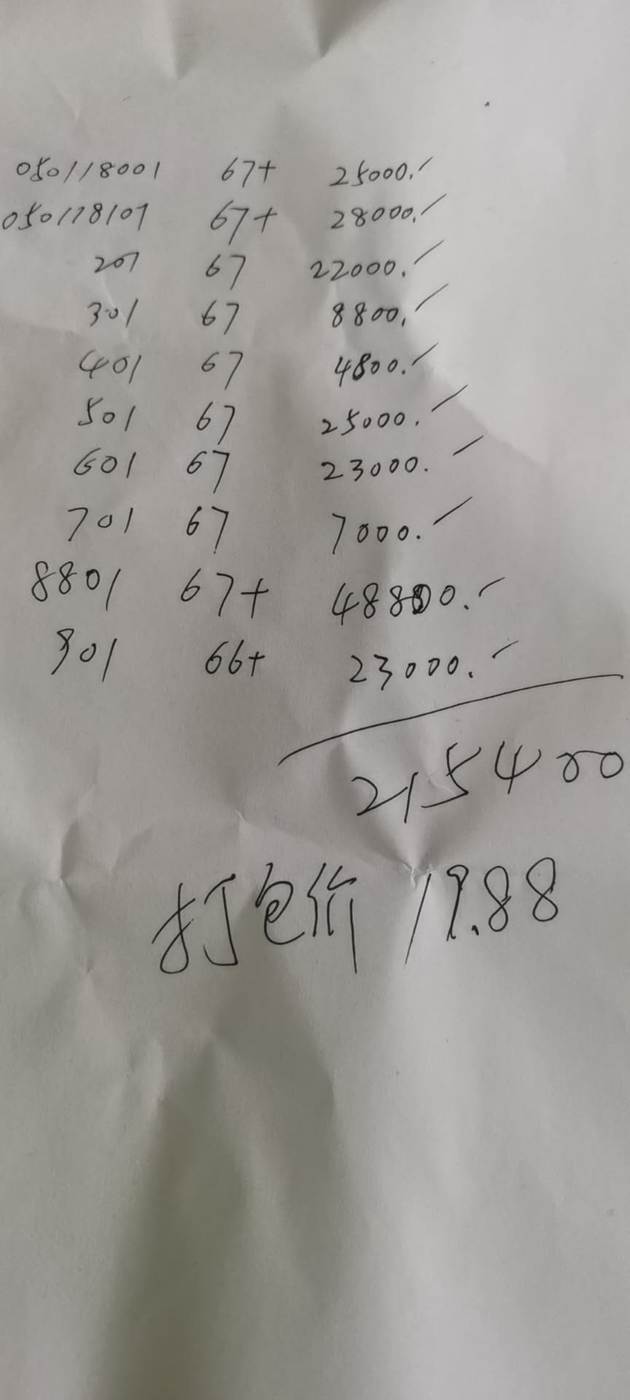 050118001 67+ 25000.-
050118101 67+ 28000.-
201 67 22000.-
301 67 8800.-
401 67 4800.-
501 67 25000.-
601 67 23000.-
701 67 7000.-
8801 67+ 48800.-
901 66+ 23000.-
215400
打包价 19.88